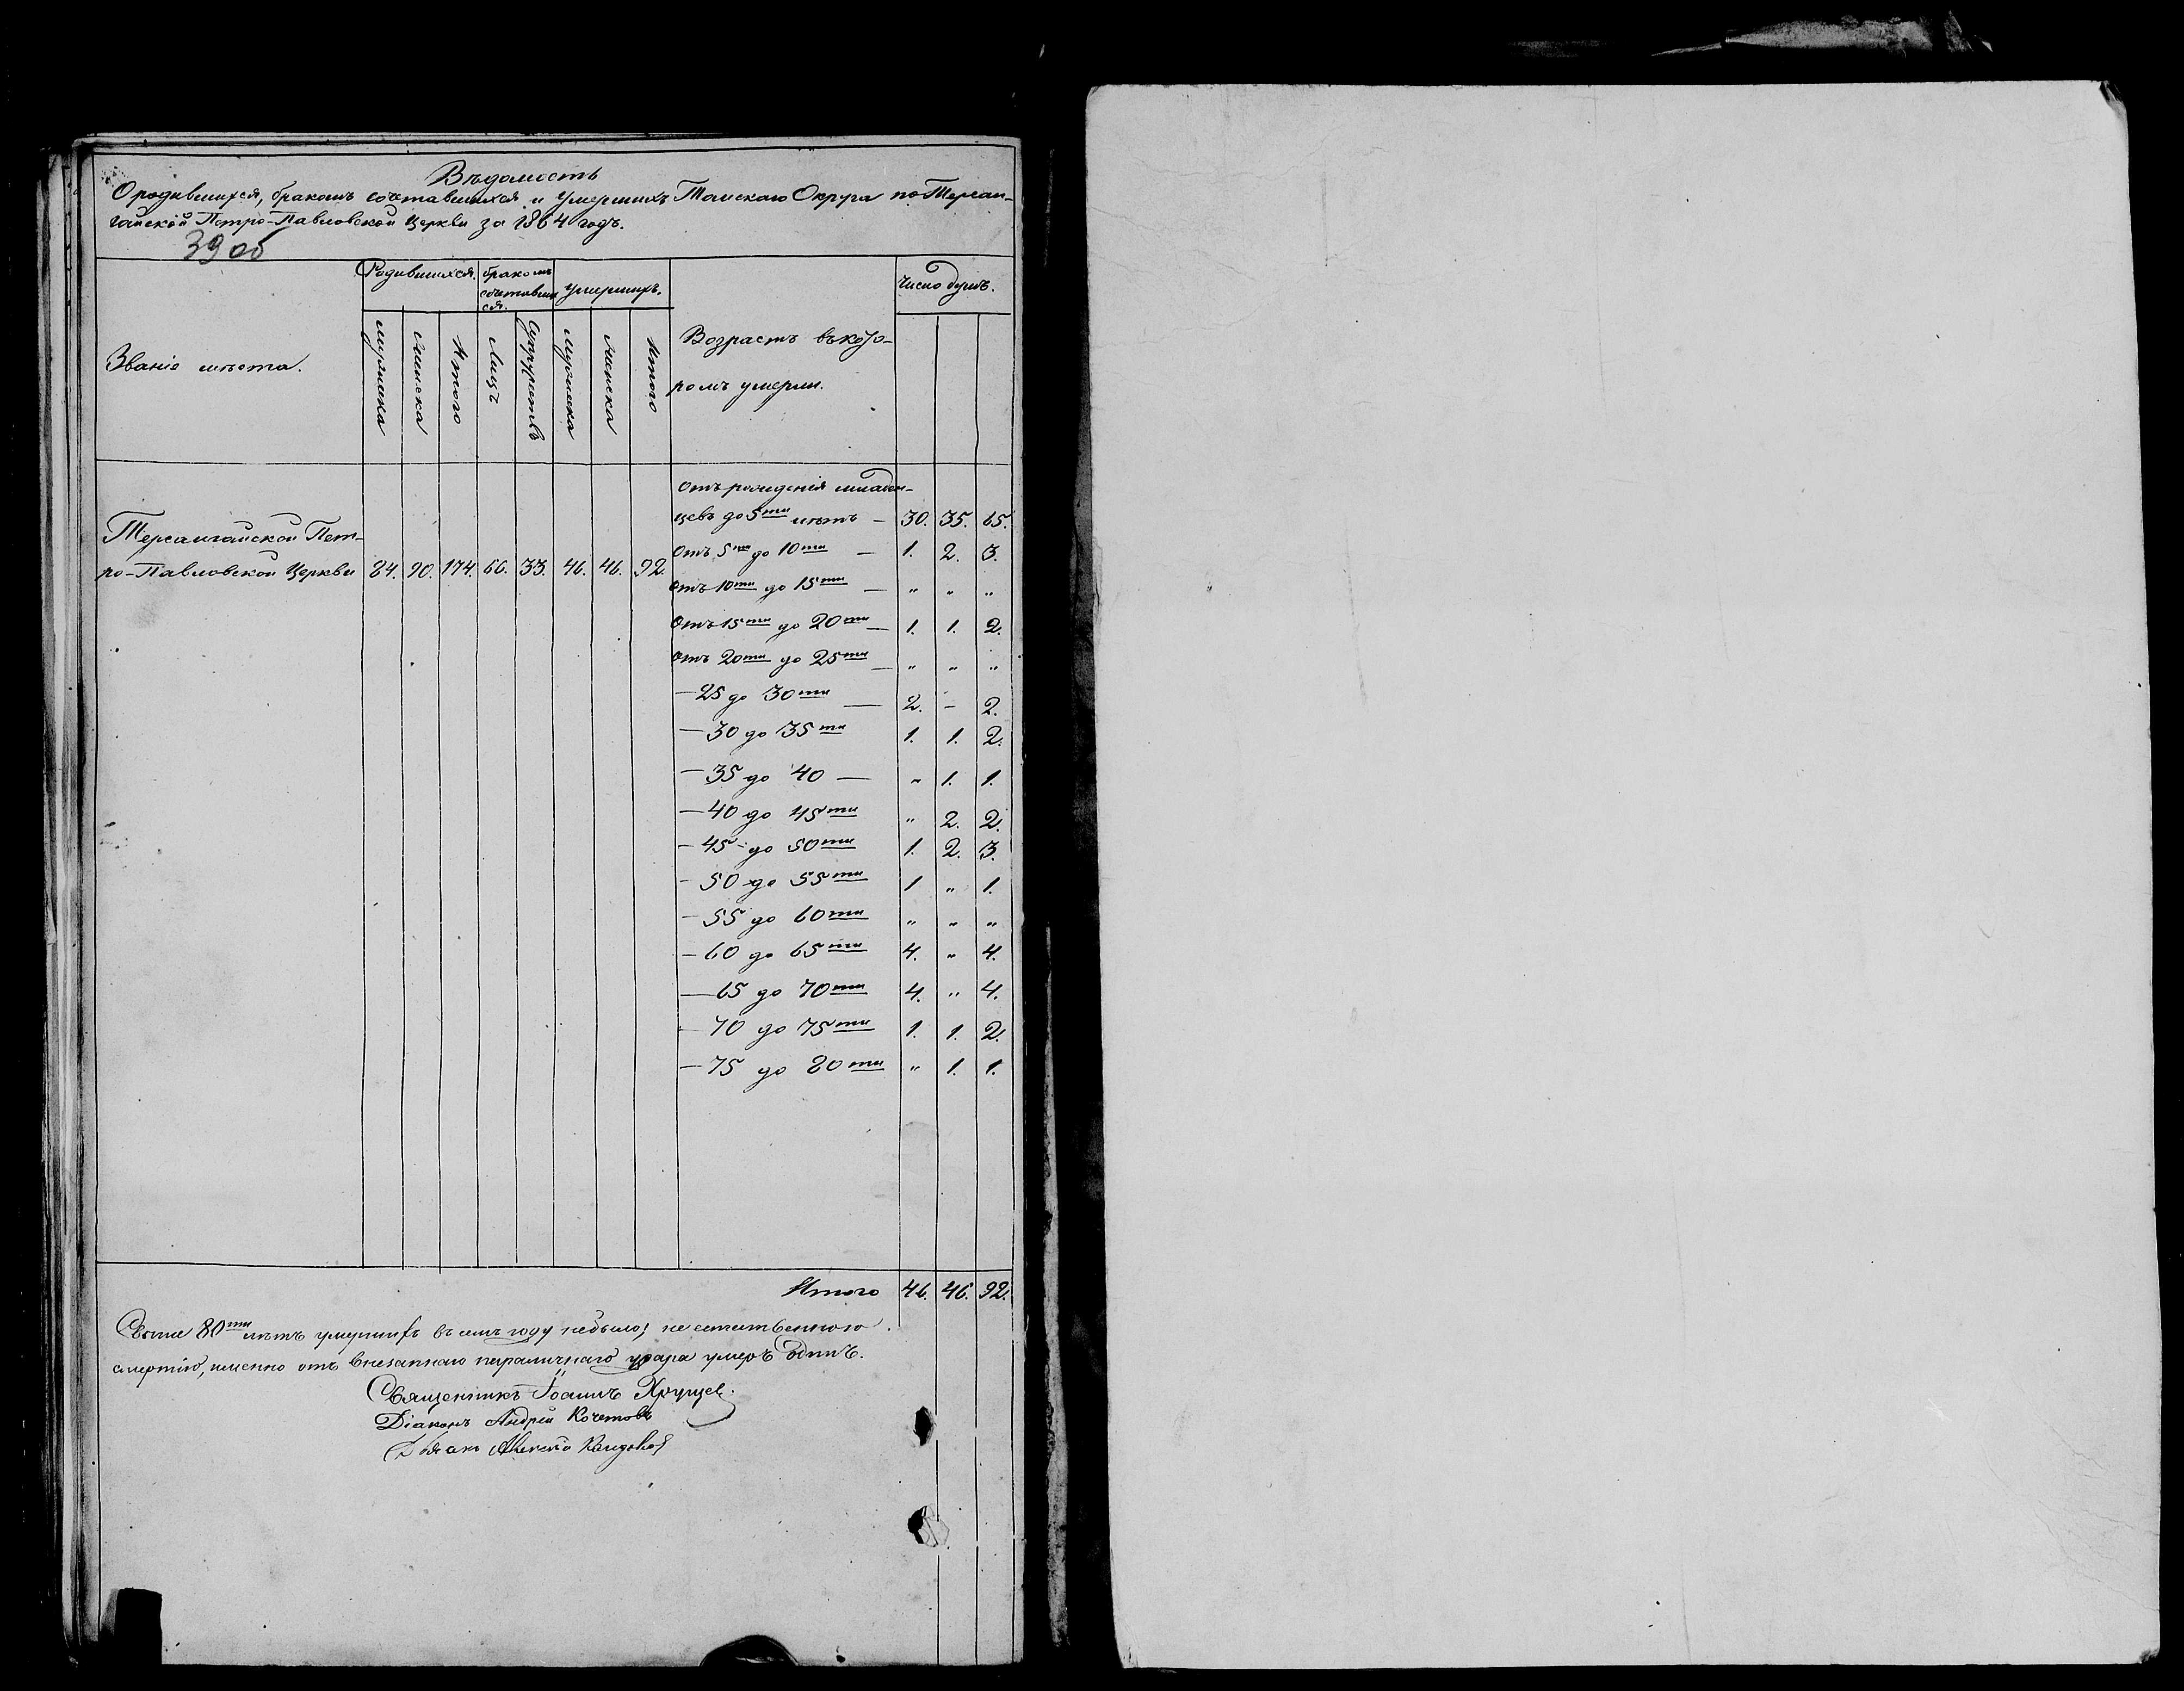 Вѣдомость
О родившихся, бракомъ сочетавшихся и умершихъ Томскаго Округа по Терсал-
гайской Петро-Павловской Церкви за 1864 годъ.
39 об
Званіе мѣста.
Родившихся.
бракомъ сочетавших ся.
умершихъ.
Возрастъ въ кото-
ромъ умерли.
Число душъ.
мужеска
женска
Итого
Лицъ
Супружествъ
Мужеска
Женска
Итого
Терсалгайской Пет-
ро-Павловской Церкви 84. 90. 174. 66. 33. 46. 46. 92.
Отъ рожденія младен-
цевъ до 5ти лѣтъ — 30. 35. 65.
Отъ 5ти до 10ти — 1. 2. 3.
Отъ 10ти до 15ти — „ „ „
Отъ 15ти до 20ти — 1. 1. 2.
Отъ 20ти до 25ти — „ „ „
— 25 до 30ти — 2. – 2.
— 30 до 35ти 1. 1. 2.
— 35 до 40 — „ 1. 1.
— 40 до 45ти „ 2. 2.
— 45 до 50ти 1. 2. 3.
— 50 до 55ти 1 „ 1.
— 55 до 60ти „ „ „
— 60 до 65ти 4. „ 4.
— 65 до 70ти 4. „ 4.
— 70 до 75ти 1. 1. 2.
— 75 до 80ти „ 1. 1.
Итого 46. 46. 92.
Свыше 80ти лѣтъ умершихъ въ семъ году небыло; не естественною
смертію, именно отъ внезапнаго параличнаго удара умеръ Одинъ.
Священникъ Іоаннъ Хрущев.
Діаконъ Андрей Кочетовъ
Дьячекъ Алексѣй